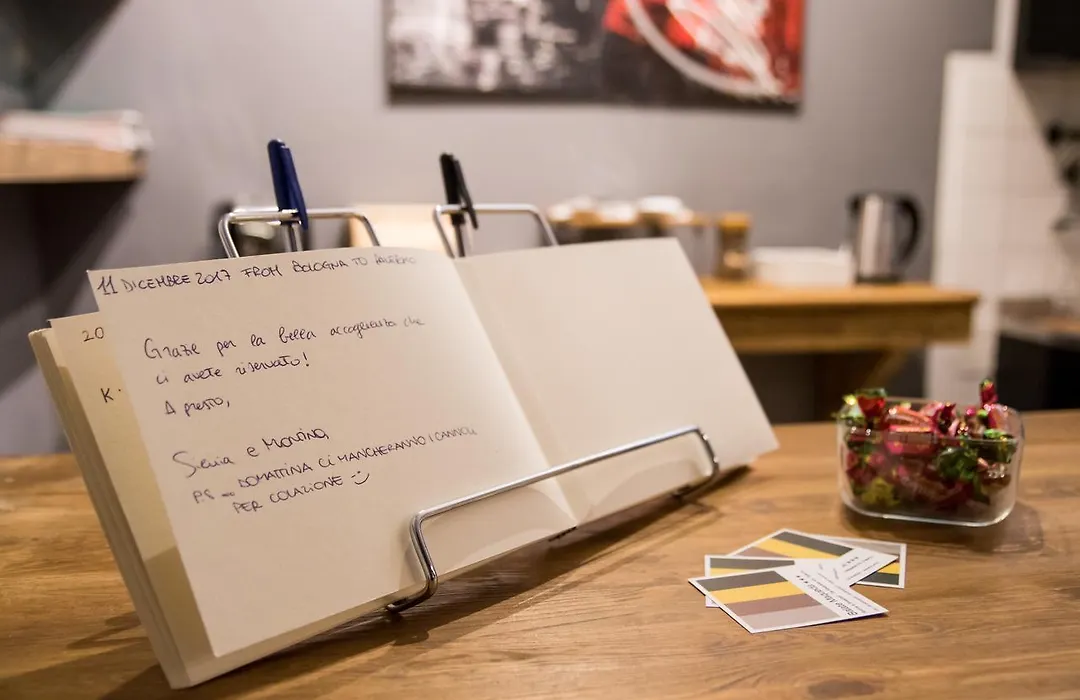 11 DICEMBRE 2017 FROM BOLOGNA TO PALERMO
Grazie per la bella accoglienza che
ci avete riservato!
A presto,
Silvia e Martina,
P.S. DOMATTINA CI MANCHERANNO I CANNOLI
PER COLAZIONE :)
20
K.